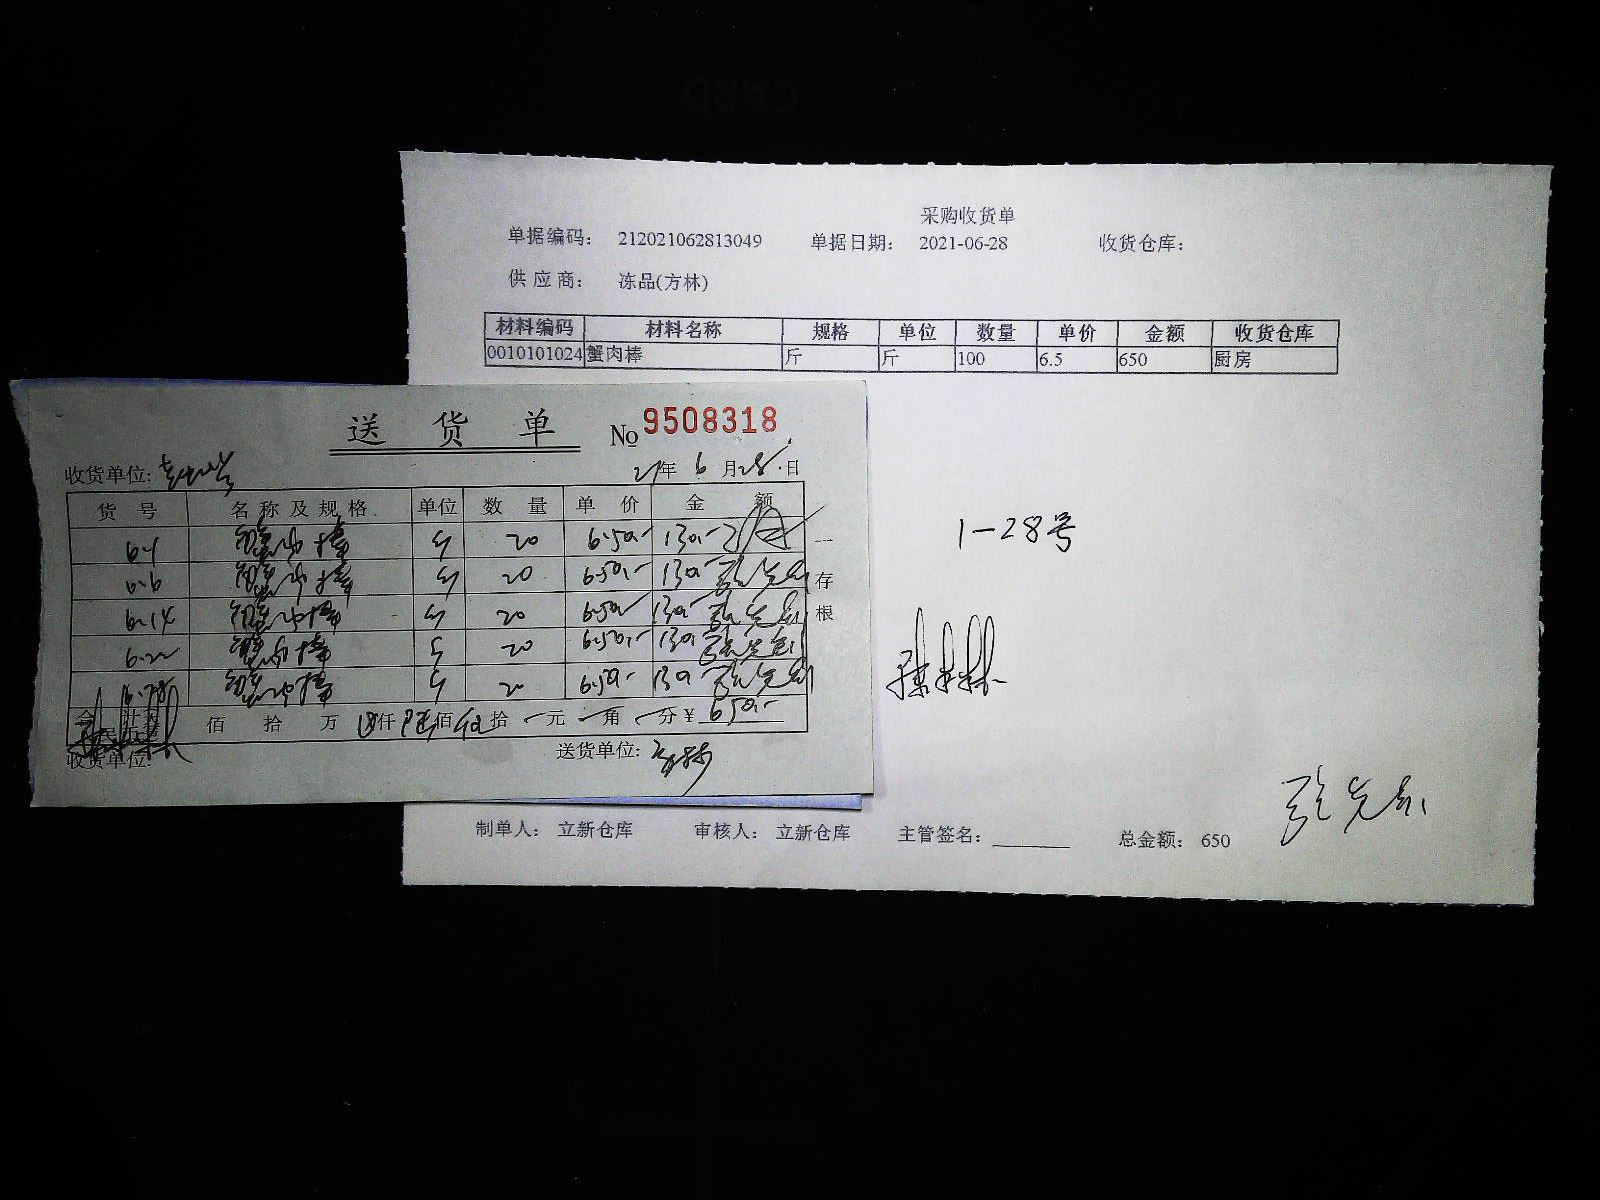 采购收货单
单据编码： 212021062813049 单据日期： 2021-06-28 收货仓库：
供应商： 冻品(方林)
材料编码 材料名称 规格 单位 数量 单价 金额 收货仓库
0010101024 蟹肉棒 斤 斤 100 6.5 650 厨房
1-28号
制单人： 立新仓库 审核人： 立新仓库 主管签名： 总金额： 650
送货单 No 9508318
收货单位: 21年 6月28日
货号 名称及规格 单位 数量 单价 金额
6-1 20 6.50 130
6.6 20 6.50 130
6-14 20 6.50 130
6.22 20 6.50 130
6.28 20 6.50 130
合计 佰 拾 万 仟 陆佰 伍拾 元 角 分 ¥ 650
收货单位: 送货单位:
一
存
根